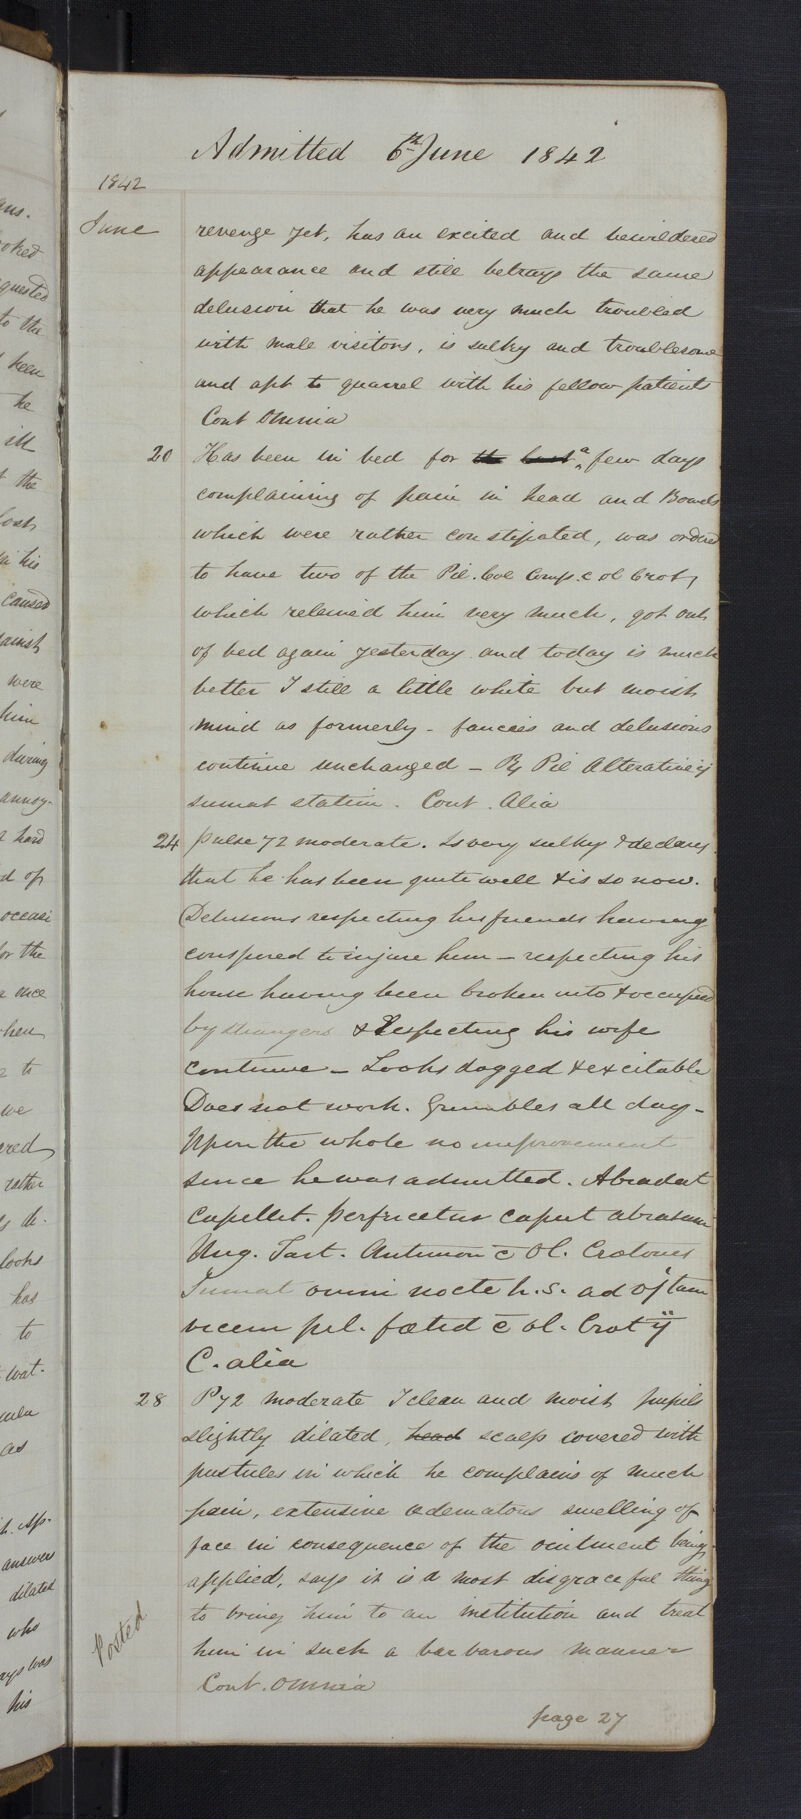 Admitted 6th June 1842
1842
June revenge yet, has an excited and bewildered
appearance and still betrays the same
delusion that he was very much troubled
with male visitors, is sulky and troublesome
and apt to quarrel with his fellow patients
Cont Omnia
20 Has been in bed for a few days
complaining of pain in head and Bowels
which were rather constipated, was ordered
to have two of the Pil. Col Comp. c ol Crot,
which releived him very much, got out
of bed again yesterday and today is much
better T still a little white but moist
mind as formerly - fancies and delusions
continue unchanged - Rx Pil Alterative ij
sumat statim. Cont. Alia
24 Pulse 72 moderate. Is very sulky & declares
that he has been quite well & is so now.
Delusions respecting his friends having
conspired to injure him - respecting his
house having been broken into & occupied
by strangers & respecting his wife
continue - Looks dogged & excitable
Does not work. Grumbles all day -
Upon the whole no improvement
since he was admitted. Abradat
capillit. perfricetur caput abrasum
Ung. Tart. Antimon c Ol. Crotonis
Sumat omni nocte h.s. ad
vicem pil. foetid c ol. Crot ij
C. alia
28 P 72 moderate T clean and moist pupils
slightly dilated, head scalp covered with
pustules in which he complains of much
pain, extensive oedematous swelling of
face in consequence of the ointment being
applied, says it is a most disgraceful thing
to bring him to an institution and treat
him in such a barbarous manner
Cont. Omnia
Posted
page 27
ooked
quested
to the
been
he
ill
the
lost
in his
caused
against
were
him
during
annoy-
a hard
d of
occasi
for the
once
when
to
we
red
rather
looks
has
to
wat-
as
answers
dilated
who
was
his